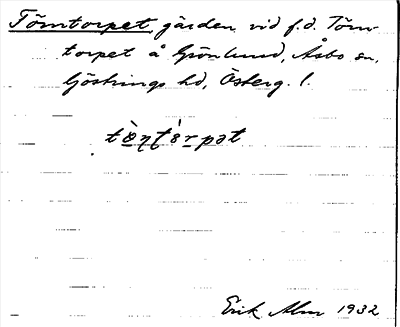 Tömtorpet, gården vid f.d. Töm-
torpet å Grönlund, Åsbo sn,
Göstrings hd, Österg. l.
Erik Alm 1932